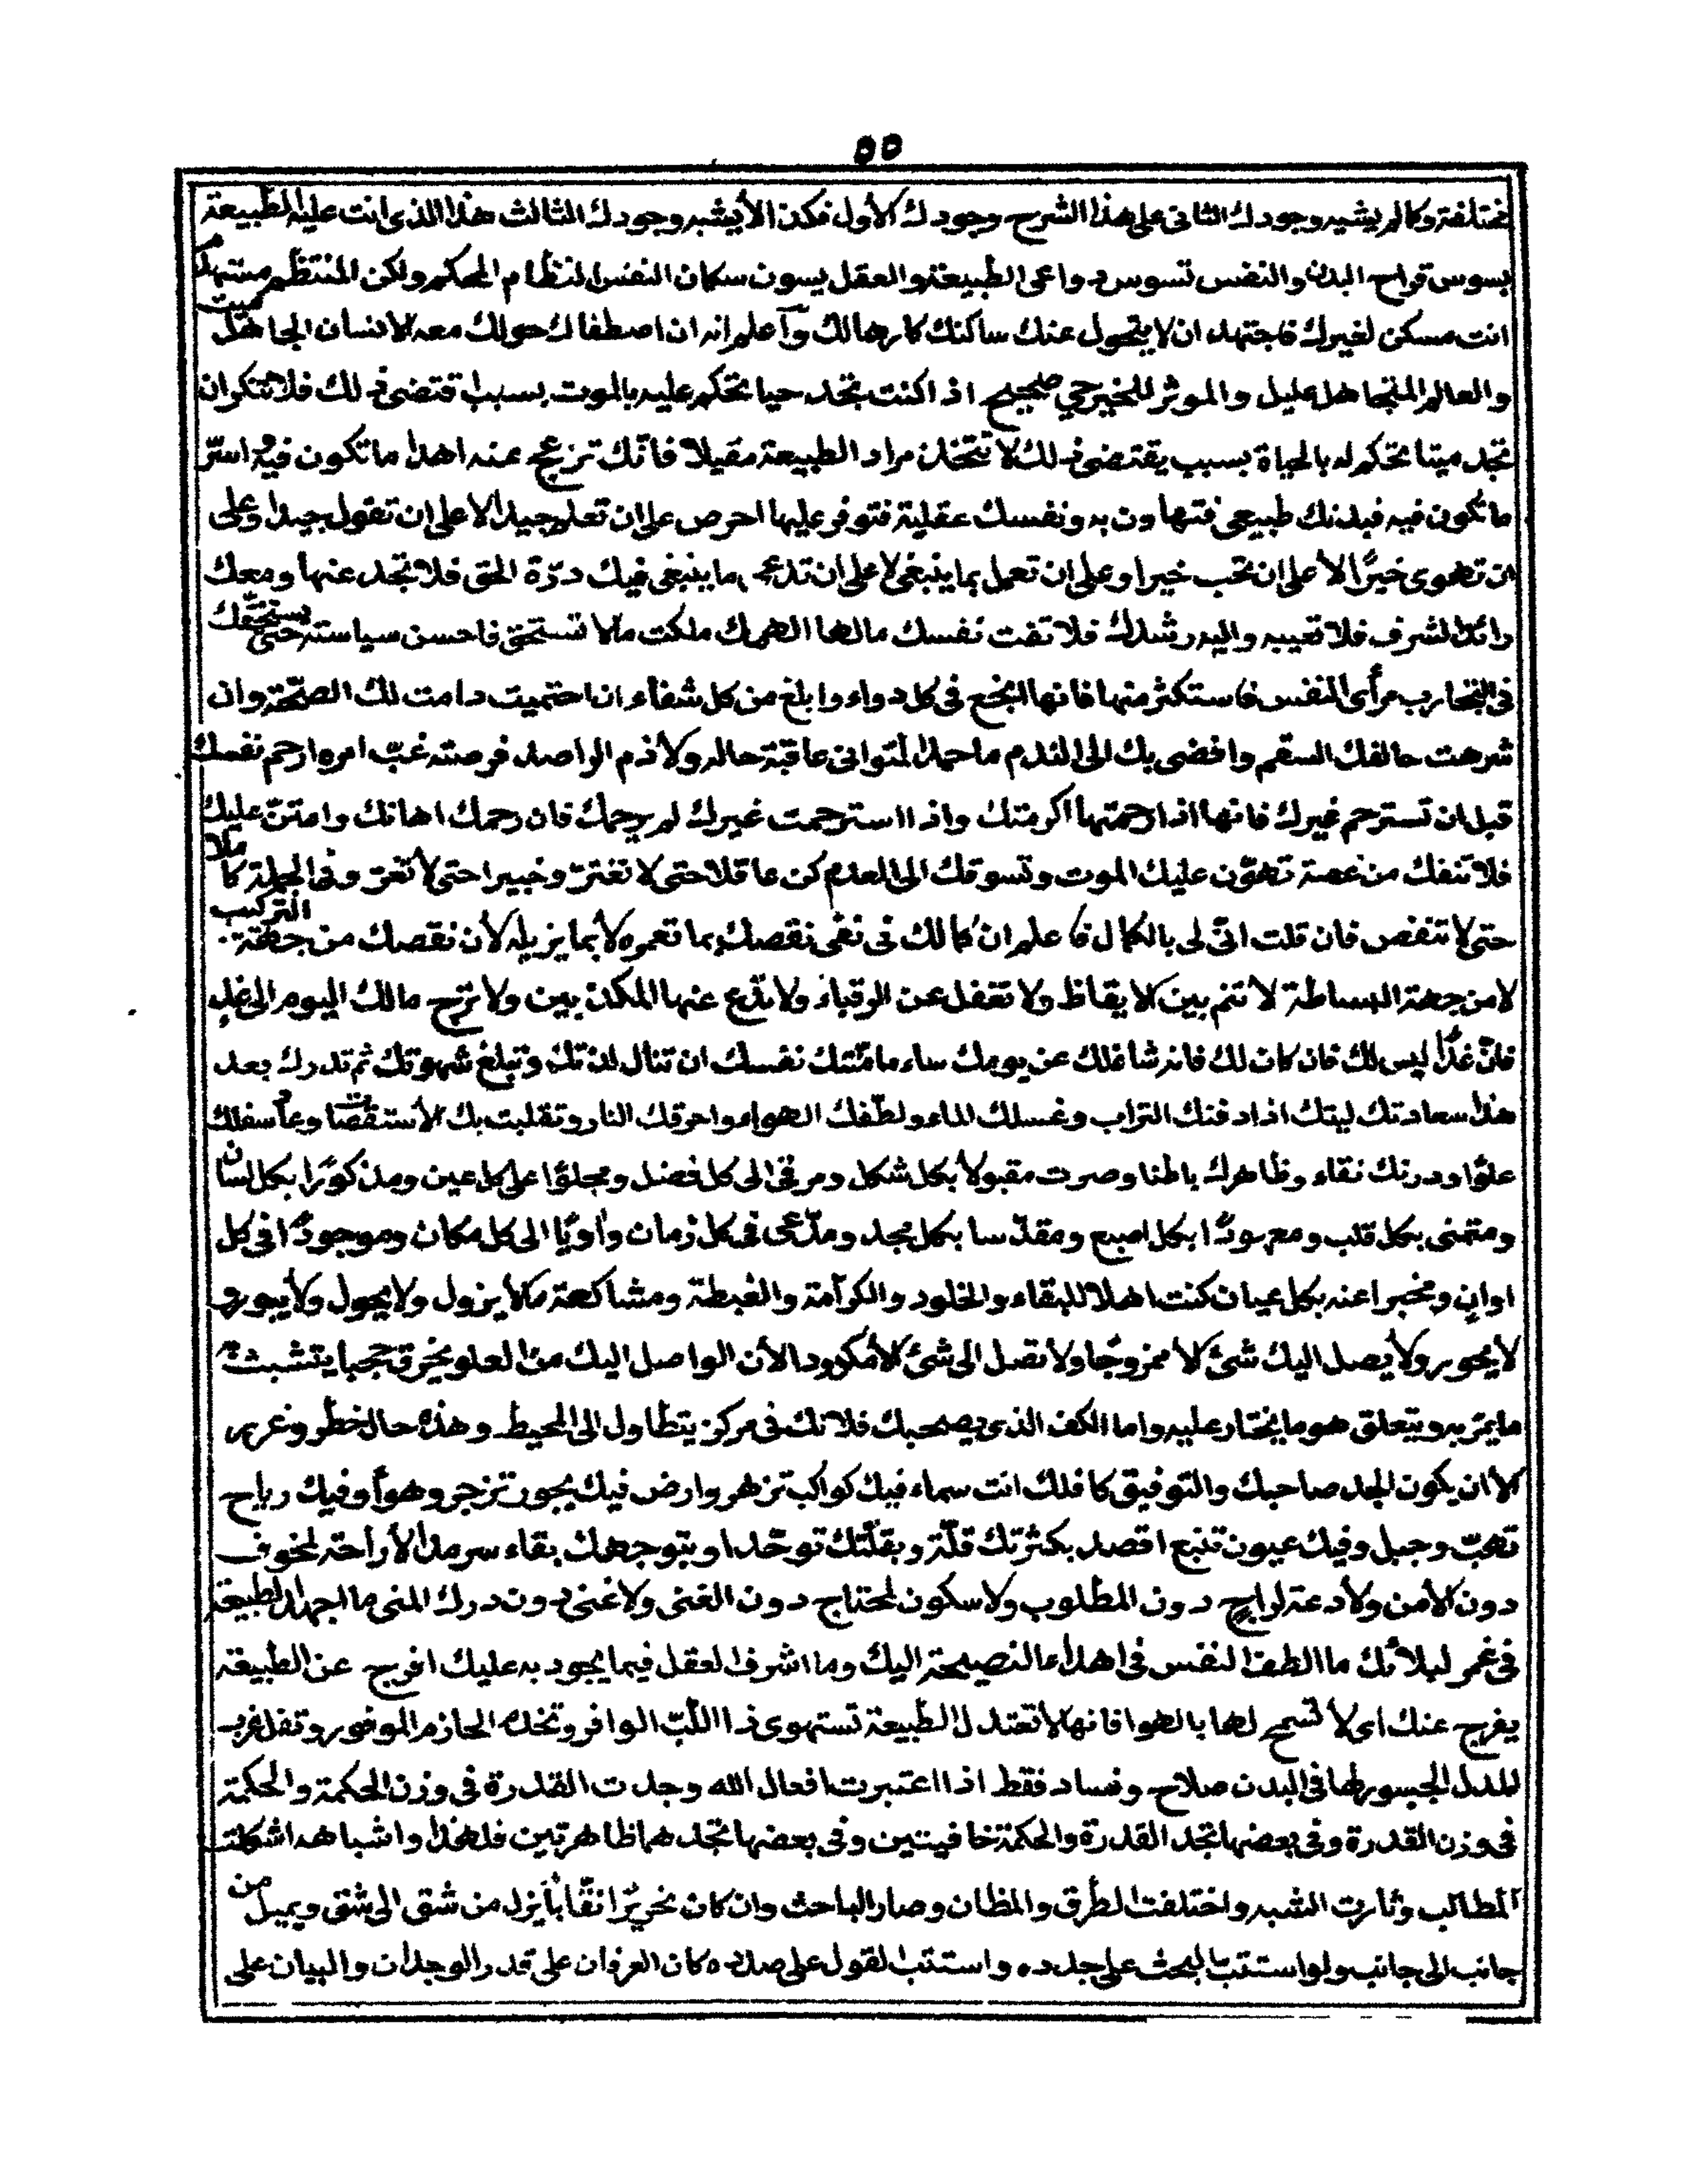 ٥٥
مختلفة وكما لم يشبه وجودك الثانى على هذا الشرح وجودك الأول فكذا لا يشبه وجودك الثالث هذا الذى انت عليه الطبيعة
يسوس قراح البدن والنفس تسوس دواعى الطبيعة والعقل يسون سكان النفس النظام المحكم ولكن المنتظم
انت مسكن لغيرك فاجتهد ان لا يتحول عنك ساكنك كارها لك واعلم انه ان اصطفاك حولك معه الانسان الجاهل ميت
والعالم المتجاهل عليل والموثر للخير حي صحيح اذا كنت تجد حيا تحكم عليه بالموت بسبب اقتضى ذلك فلا تنكر ان
تجد ميتا تحكم له بالحياة بسبب يقتضى ذلك لا تتخذن مراد الطبيعة مقيلا فانك تزعج عنه اهدا ما تكون فيه واسر
ما تكون فيه فبدنك طبيعى فتهاون به ونفسك عقلية فتوفر عليها احرص على ان تعلم جيدا لا على ان تقول جيدا وعلى
ان تهوى خيرًا لا على ان تحب خيرا وعلى ان تعمل بما ينبغى لا على ان تدعى ما ينبغى فيك درّة الحق فلا تجد عنها ومعك
رائد الشرف فلا تعيبه واليه رشدك فلا تفت نفسك مالها الهمك ملكت مالا تستحق فاحسن سياسته حتى يستحقك
فى التجارب مرأى النفس فاستكثر منها فانها انجع فى كل دواء وابلغ من كل شفاء ان احتميت دامت لك الصحّة وان
شرهت حالفك السقم وافضى بك الى الندم ما حمد المتوانى عاقبة حاله ولا ذم الراصد فرصته غبّ امره ارحم نفسك
قبل ان تسترحم غيرك فانها اذا رحمتها اكرمتك واذا استرحمت غيرك لم يرحمك فان رحمك اهانك وامتنّ عليك
فلا تنفك من غصة تهوّن عليك الموت وتسوقك الى العدم كن عاقلا حتى لا تغترّ وخبيرا حتى لا تغرّ وفى الجملة كاملا
حتى لا تنقص فان قلت انّى لى بالكمال فاعلم ان كمالك فى نفى نقصك بما تعمره لا بما يزيله لأن نقصك من جهة التركيب
لا من جهة البساطة لا تنم بين الايقاظ ولا تغفل عن الرقباء ولا تدّع عنها المكذبين ولا ترج مالك اليوم الى غد
فانّ غدًا ليس لك فان كان لك فانه شاغلك عن يومك ساء ما منّتك نفسك ان تنال لذتك وتبلغ شهوتك ثم تدرك بعد
هذا سعادتك ليتك اذا دفنك التراب وغسلك الماء ولطّفك الهواء واحرقك النار وتقلبت بك الأستقصات وعاد سفلك
علوّا ودرنك نقاء وظاهرك باطنا وصرت مقبولا بكل شكل ومرقى الى كل فضل ومجلوّا على كل عين ومذكورًا بكل لسان
ومتمنى بكل قلب ومعبودًا بكل اصبع ومقدّسا بكل مجد ومدّعى فى كل زمان وأويًا الى كل مكان وموجودًا فى كل
اوانٍ ومخبرا عنه بكل عيان كنت اهلا للبقاء والخلود والكرامة والغبطة ومشاكهة مالا يزول ولا يحول ولا يبور و
لا يحور ولا يصل اليك شئ الا ممزوجًا ولا تصل الى شئ الا مكدودا لأن الواصل اليك من العلو يخرق حجبا يتشبث
ما يمرّ به ويتعلق هو ما يختار عليه واما الكف الذى يصحبك فلانك فى مركز يتطاول الى المحيط وهذه حال خطر وغرر
الا ان يكون الجد صاحبك والتوفيق كافلك انت سماء فيك كواكب تزهر وارض فيك بحور تزخر وهواء وفيك رياح
تهبّ وجبل وفيك عيون تنبع اقصد بكثرتك قلّة وبقلّتك توحّدا وبتوجهك بقاء سرمدا لا راحة لمخوف
دون الأمن ولا دعة لراجٍ دون المطلوب ولا سكون لمحتاج دون الغنى ولا غنى دون درك المنى ما اجهد الطبيعة
فى غمر لبلائك ما الطف النفس فى اهداء النصيحة اليك وما اشرف العقل فيما يجود به عليك افرج عن الطبيعة
يفرج عنك اى لا تسمح لها بالهوا فانها لا تعتدل الطبيعة تستهوى ذا اللبّ الوافر وتخدع الحازم الموفور وتفل غرب
المدل الجسور لها فى البدن صلاح وفساد فقط اذا اعتبرت افعال الله وجدت القدرة فى وزن الحكمة والحكمة
فى وزن القدرة وفى بعضها تجد القدرة والحكمة خافيتين وفى بعضها تجدهما ظاهرتين فلهذا واشباهه اشكلت
المطالب وثارت الشبه واختلفت الطرق والمظان وصار الباحث وان كان نحريرًا نقّابا يزل من شق الى شق ويميل من
جانب الى جانب ولو استتبّ البحث على جدده واستتب القول على صدده كان العرفان على قدر الوجدان والبيان على